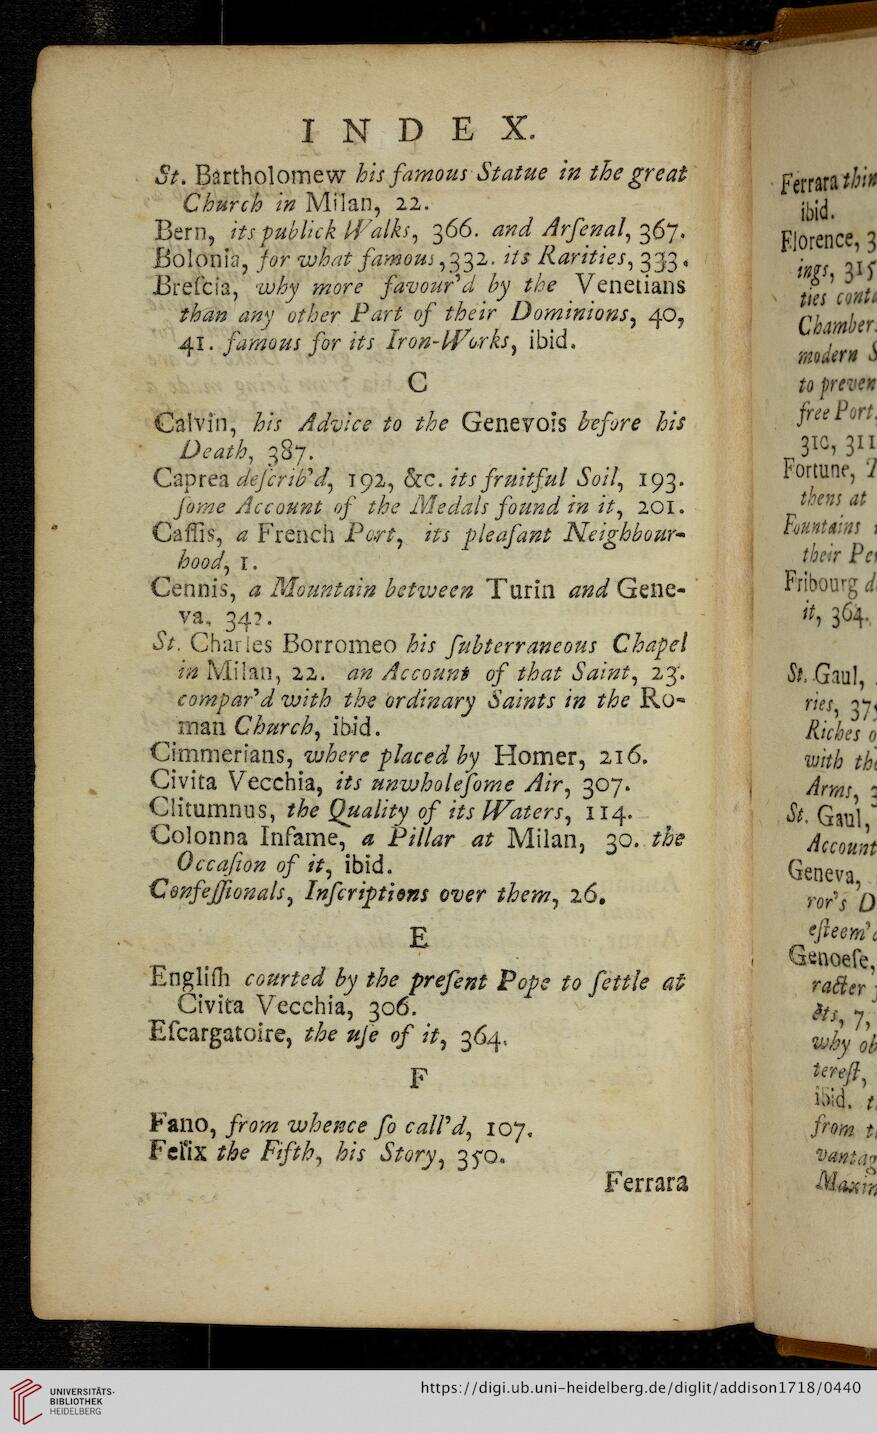 INDEX.
St. Bartholomew his famous Statue in the great
Church in Milan, 22.
Bern, its publick Walks, 366. and Arſenal, 367.
Bolonia, for what famous, 332. its Rarities, 333.
Breſcia, why more favour'd by the Venetians
than any other Part of their Dominions, 40,
41. famous for its Iron-Works, ibid.
C
Calvin, his Advice to the Genevois before his
Death, 387.
Caprea deſcrib'd, 192, &c. its fruitful Soil, 193.
ſome Account of the Medals found in it, 201.
Caſſis, a French Port, its pleaſant Neighbour-
hood, 1.
Cennis, a Mountain between Turin and Gene-
va, 342.
St. Charles Borromeo his ſubterraneous Chapel
in Milan, 22. an Account of that Saint, 23.
compar'd with the ordinary Saints in the Ro-
man Church, ibid.
Cimmerians, where placed by Homer, 216.
Civita Vecchia, its unwholeſome Air, 307.
Clitumnus, the Quality of its Waters, 114.
Colonna Infame, a Pillar at Milan, 30. the
Occaſion of it, ibid.
Confeſſionals, Inſcriptions over them, 26.
E
Engliſh courted by the preſent Pope to ſettle at
Civita Vecchia, 306.
Eſcargatoire, the uſe of it, 364.
F
Fano, from whence ſo call'd, 107.
Felix the Fifth, his Story, 350.
Ferrara
Ferrara
ibid.
Florence, 3
ings, 315
ties
Chamber
modern
to
free Port
310, 311
Fortune,
thens at
Fountains
their
Fribourg
it, 364.
St. Gaul,
ries,
Riches
with
Arms,
St. Gaul,
Account
Geneva,
ror's
eſteem'
Genoeſe,
racter
7,
why
tereſt,
ibid.
from
UNIVERSITÄTS-
BIBLIOTHEK
HEIDELBERG
https://digi.ub.uni-heidelberg.de/diglit/addison1718/0440